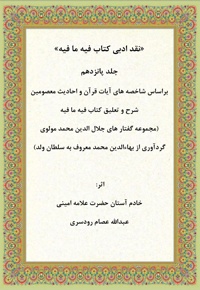 «نقد ادبی کتاب فیه ما فیه»
جلد پانزدهم
براساس شاخصه های آیات قرآن و احادیث معصومین
شرح و تعلیق کتاب فیه ما فیه
(مجموعه گفتار های جلال الدین محمد مولوی
گردآوری از بهاءالدین محمد معروف به سلطان ولد)
اثر:
خادم آستان حضرت علامه امینی
عبدالله عصام رودسری